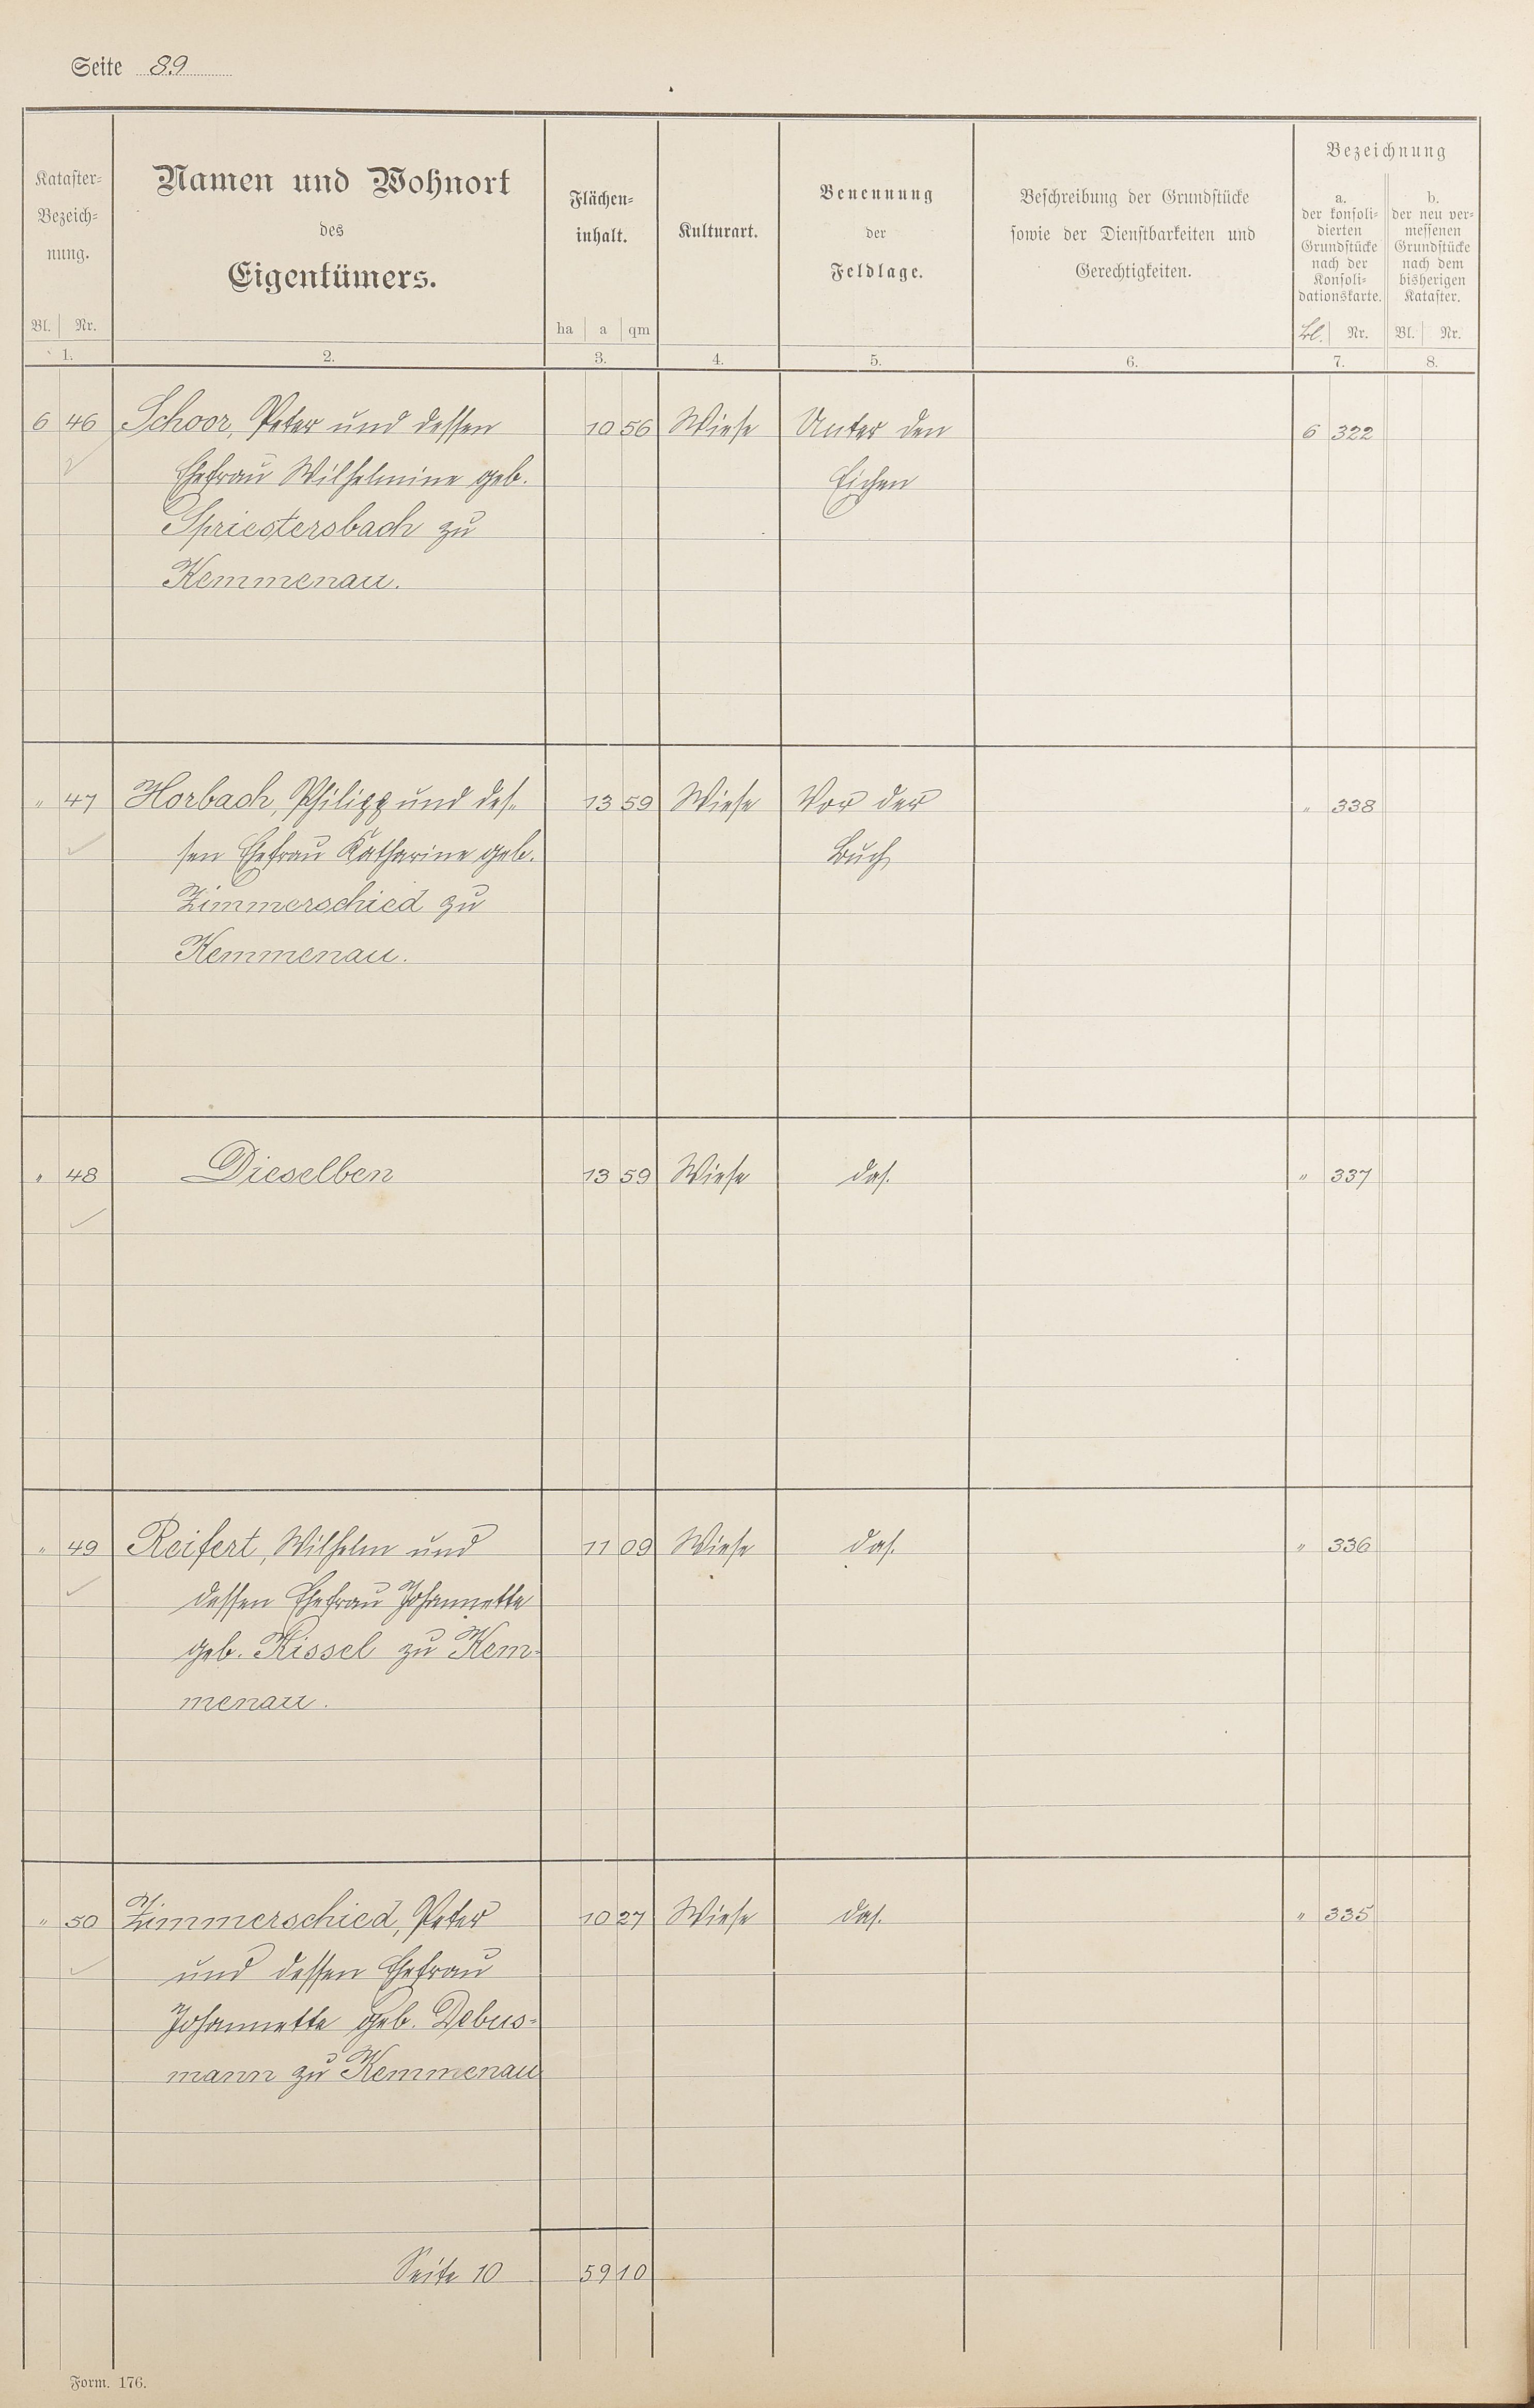 Seite 89
Kataster-
Bezeich-
nung.
Bl. Nr.
1.
Namen und Wohnort
des
Eigentümers.
2.
Flächen-
inhalt.
ha a qm
3.
Kulturart.
4.
Benennung
der
Feldlage.
5.
Beschreibung der Grundstücke
sowie der Dienstbarkeiten und
Gerechtigkeiten.
6.
Bezeichnung
a.
der konsoli-
dierten
Grundstücke
nach der
Konsoli-
dationskarte.
Bl. Nr.
7.
b.
der neu ver-
messenen
Grundstücke
nach dem
bisherigen
Kataster.
Bl. Nr.
8.
6 46 Schoor, Peter und dessen 10 56 Wiese Unter den 6 322
Ehefrau Wilhelmine geb. Eichen
Spriestersbach zu
Kemmenau.
" 47 Horbach, Philipp und des- 13 59 Wiese Vor der " 338
sen Ehefrau Katharine geb. Buch
Zimmerschied zu
Kemmenau.
" 48 Dieselben 13 59 Wiese das. " 337
" 49 Reifert, Wilhelm und 11 09 Wiese das. " 336
dessen Ehefrau Johannette
geb. Kissel zu Kem-
menau.
" 50 Zimmerschied, Peter 10 27 Wiese das. " 335
und dessen Ehefrau
Johannette geb. Debus-
mann zu Kemmenau
Seite 10 59 10
Form. 176.